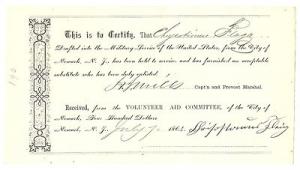 This is to Certify, That Chrystimus Flagg
Drafted into the Military Service of the United States, from the City of
Newark, N. J., has been held to service, and has furnished an acceptable
substitute who has been duly enlisted.
Capt'n and Provost Marshal.
Received, from the VOLUNTEER AID COMMITTEE, of the City of
Newark, Two Hundred Dollars
Newark, N. J., July 186